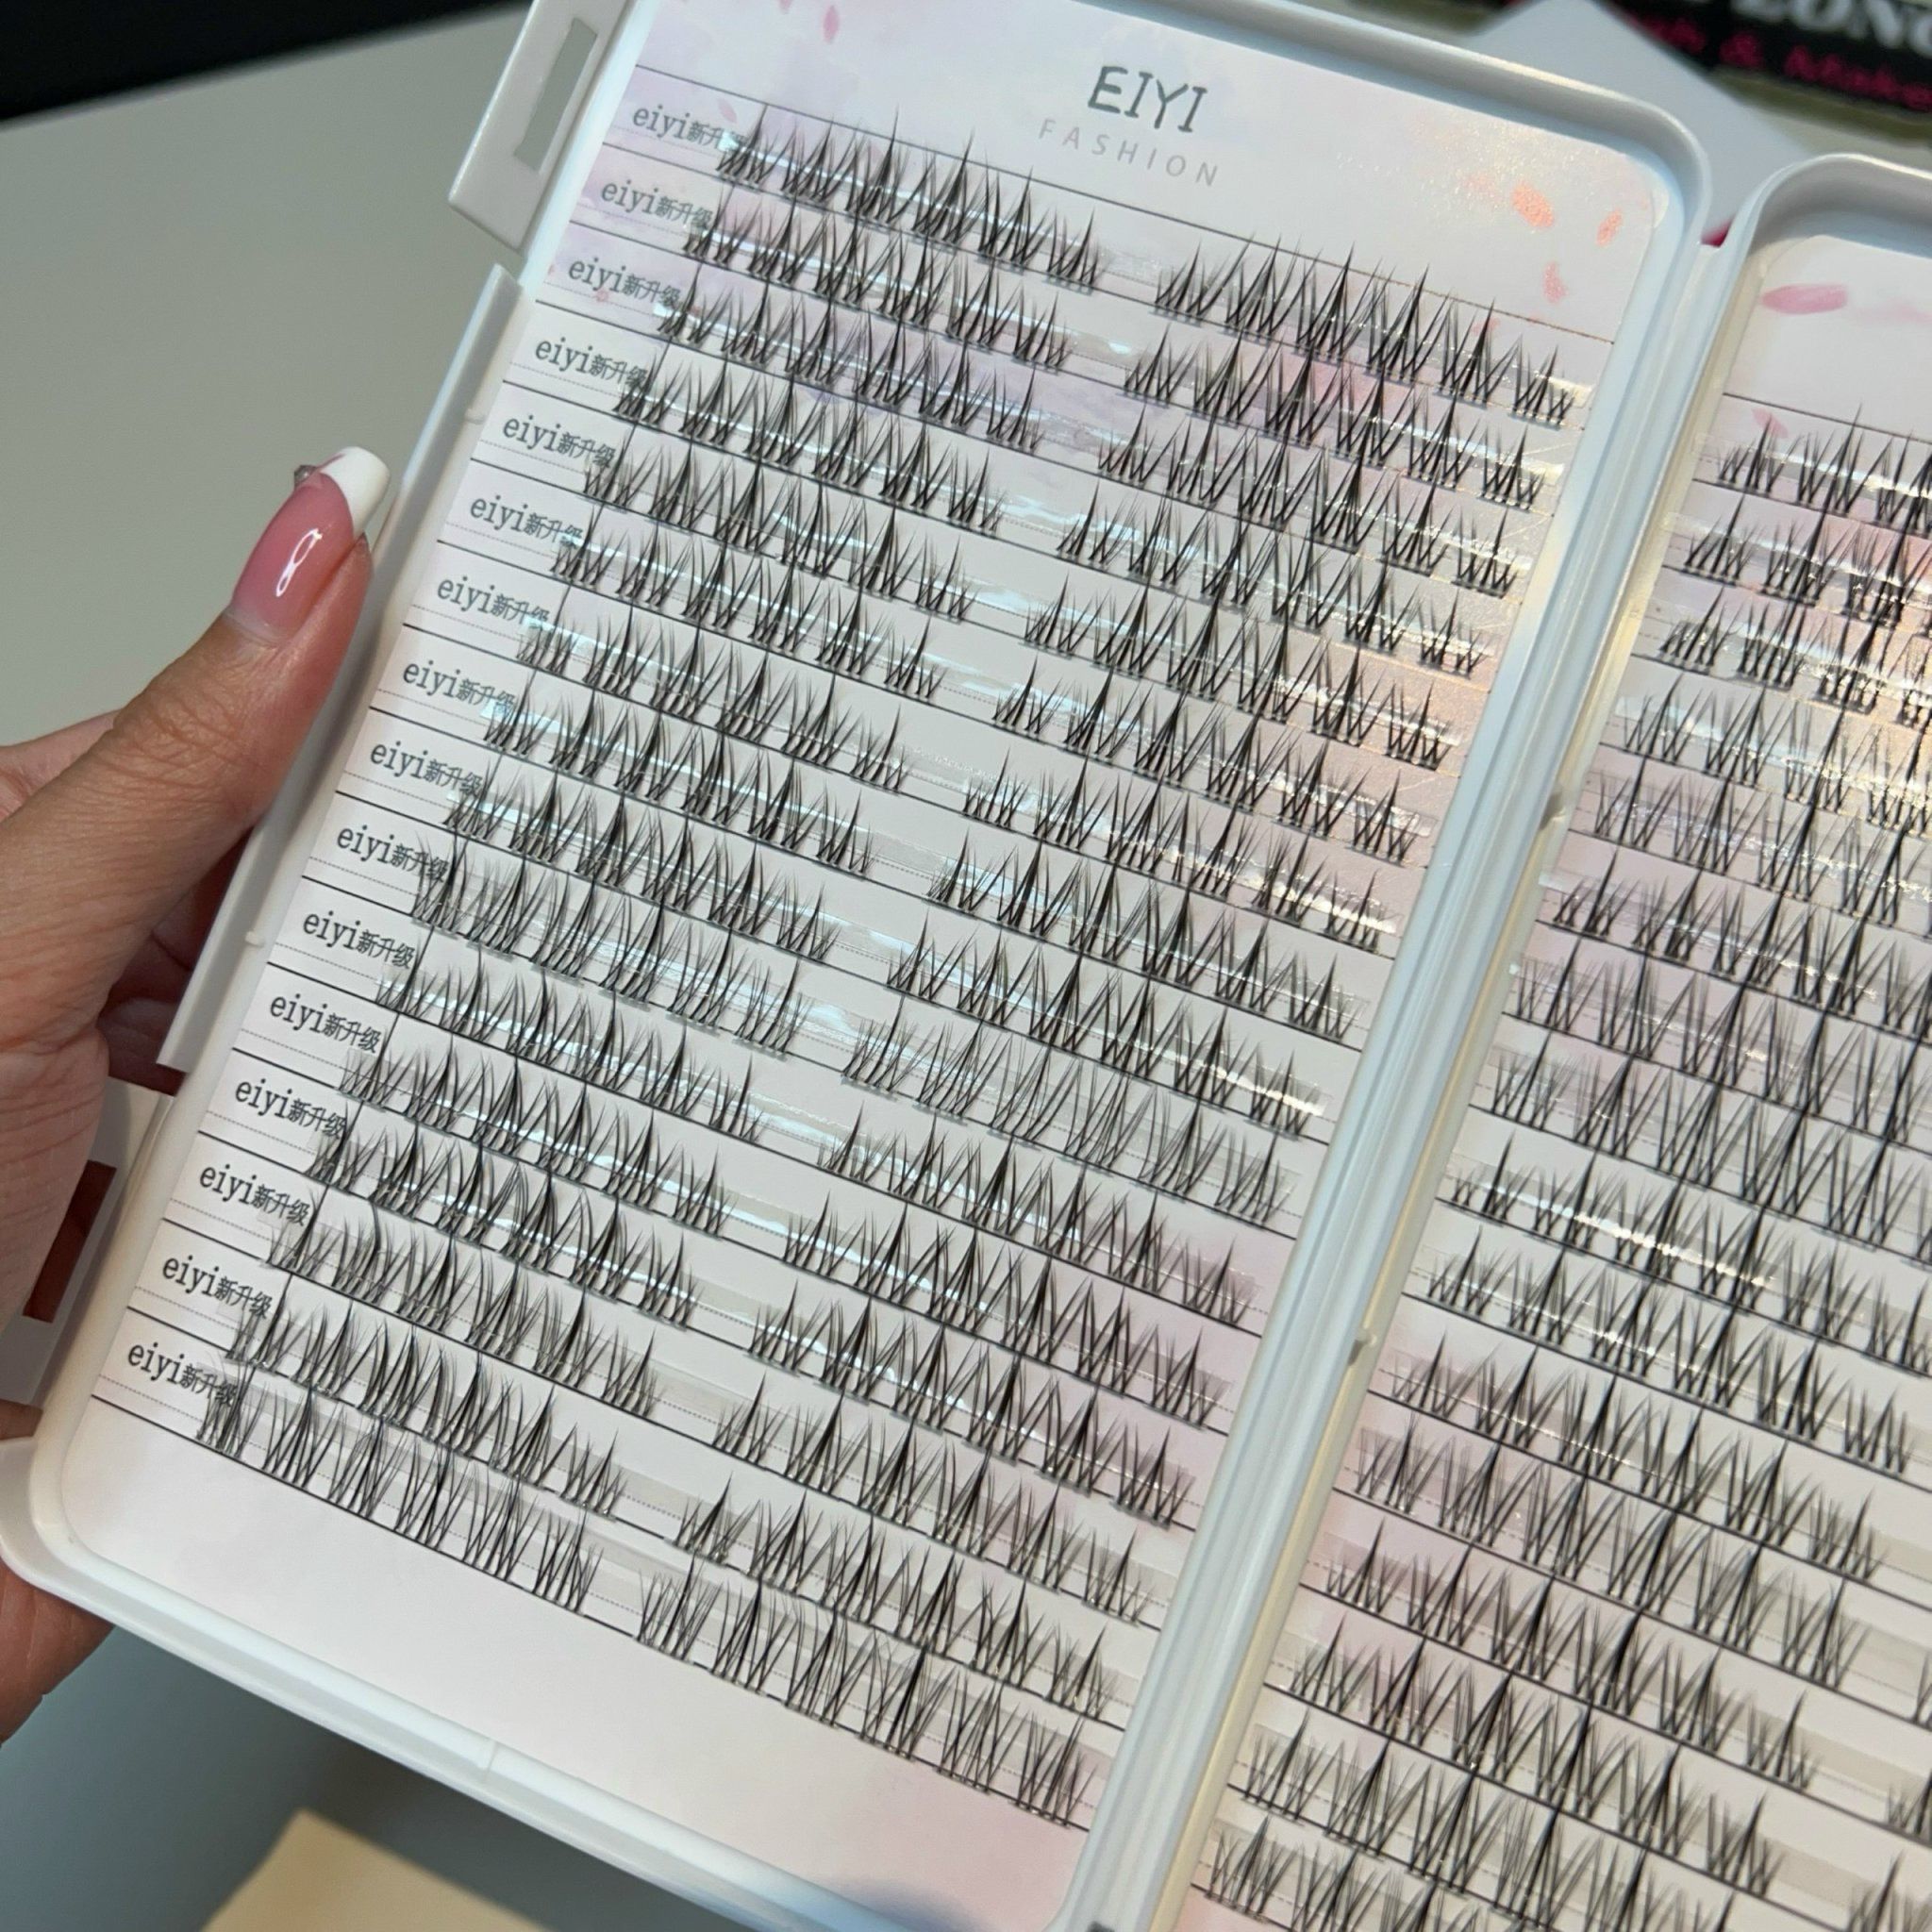 EIYI
FASHION
eiyi新升级
eiyi新升级
eiyi新升级
eiyi新升级
eiyi新升级
eiyi新升级
eiyi新升级
eiyi新升级
eiyi新升级
eiyi新升级
eiyi新升级
eiyi新升级
eiyi新升级
eiyi新升级
eiyi新升级
eiyi新升级